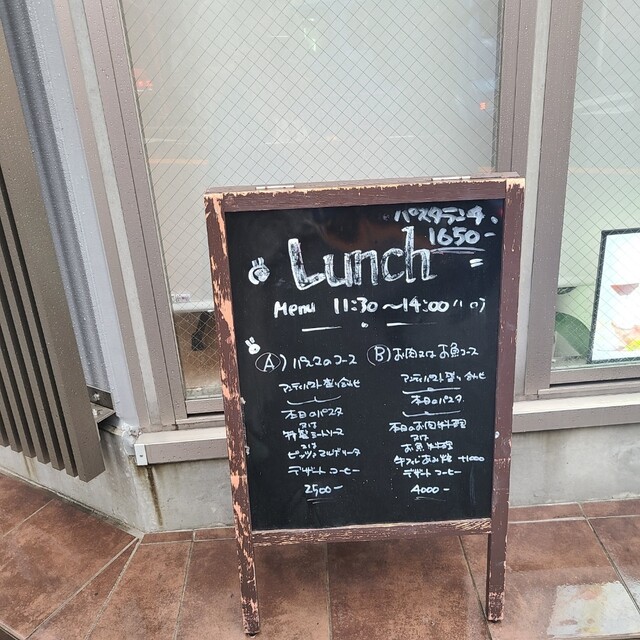 パスタランチ
1650-
Lunch
Menu 11:30〜14:00
Ⓐ) パスタのコース
アンティパスト盛り合せ
本日のパスタ
又は
特製ミートソース
又は
ピッツァマルゲリータ
デザート コーヒー
2500-
Ⓑ) お肉又はお魚コース
アンティパスト盛り合せ
本日のパスタ
本日のお肉料理
又は
お魚料理
デザート コーヒー
4000-